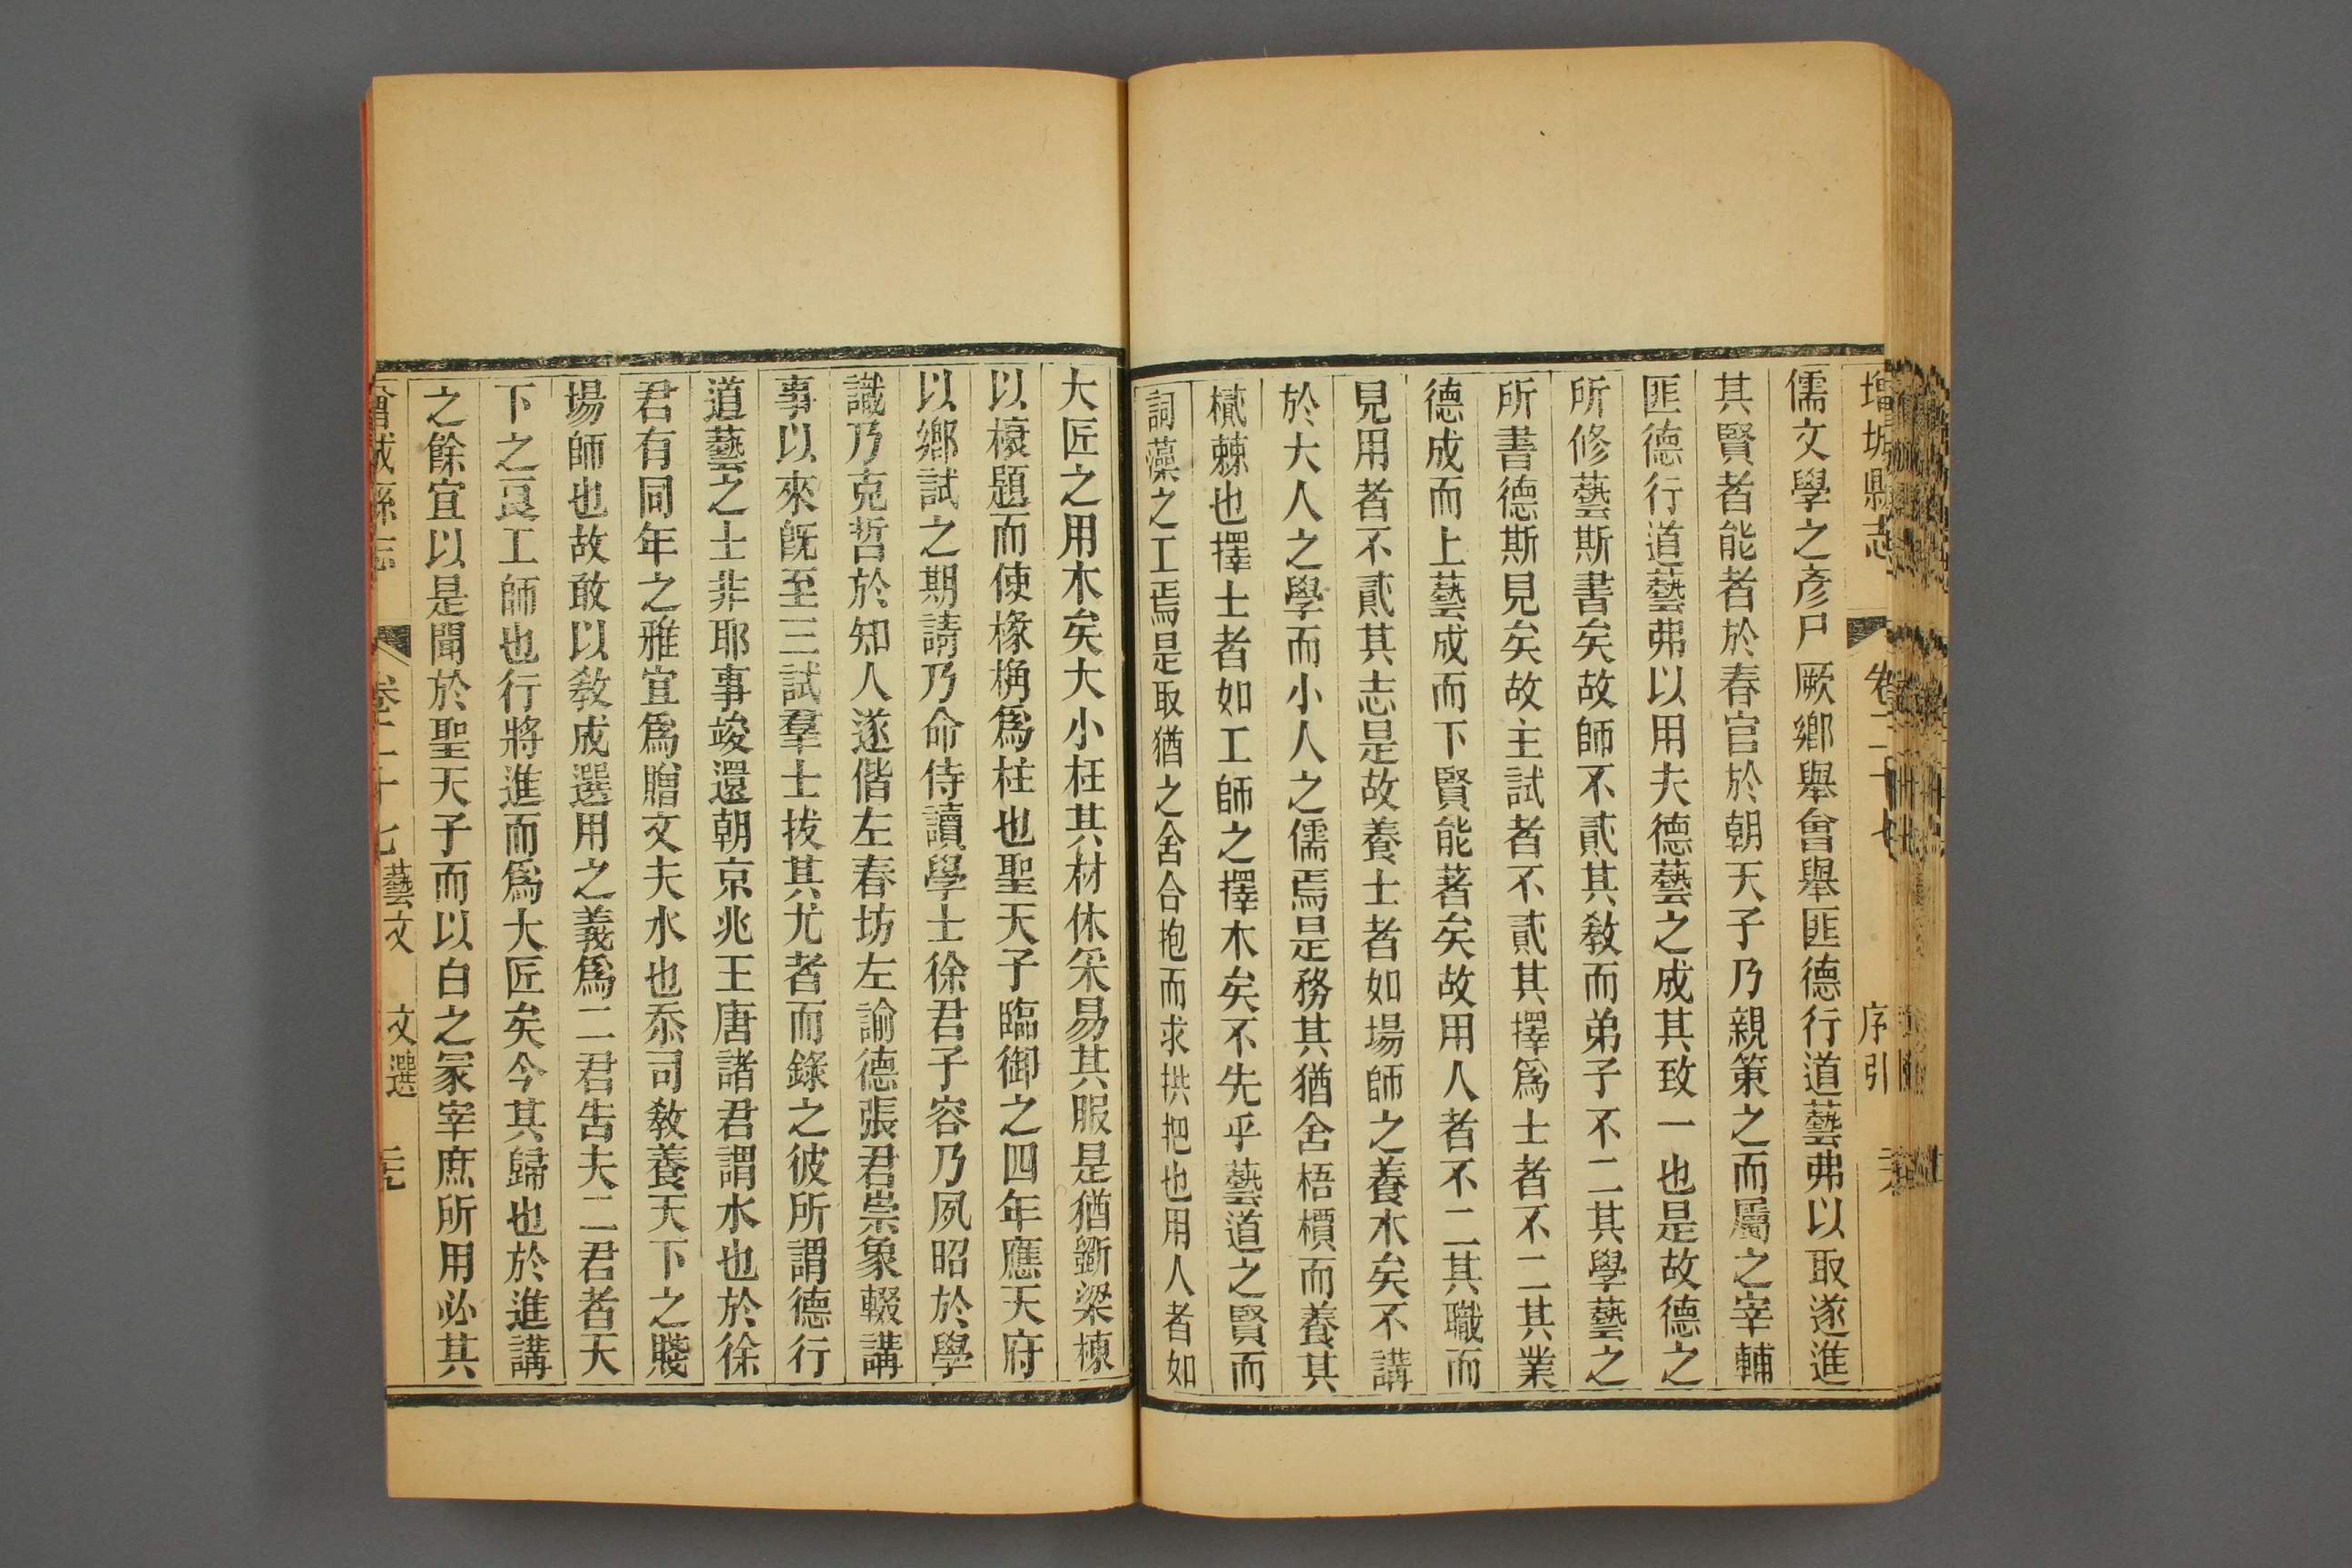 增城縣志 卷二十七 序引
儒文學之彥尸厥鄉舉會舉匪德行道藝弗以取遂進
其賢者能者於春官於朝天子乃親策之而屬之宰輔
匪德行道藝弗以用夫德藝之成其致一也是故德之
所修藝斯書矣故師不貳其敎而弟子不二其學藝之
所書德斯見矣故主試者不貳其擇爲士者不二其業
德成而上藝成而下賢能著矣故用人者不二其職而
見用者不貳其志是故養士者如場師之養木矣不講
於大人之學而小人之儒焉是務其猶舍梧檟而養其
樲棘也擇士者如工師之擇木矣不先乎藝道之賢而
詞藻之工焉是取猶之舍合抱而求拱把也用人者如
大匠之用木矣大小枉其材休采易其服是猶斵梁棟
以榱題而使椽桷爲柱也聖天子臨御之四年應天府
以鄉試之期請乃命侍讀學士徐君子容乃夙昭於學
識乃克哲於知人遂偕左春坊左諭德張君崇象輟講
事以來旣至三試羣士拔其尤者而錄之彼所謂德行
道藝之士非耶事竣還朝京兆王唐諸君謂水也於徐
君有同年之雅宜爲贈文夫水也忝司敎養天下之賤
場師也故敢以敎成選用之義爲二君吿夫二君者天
下之良工師也行將進而爲大匠矣今其歸也於進講
之餘宜以是聞於聖天子而以白之冢宰庶所用必其
增城縣志 卷二十七 藝文 文選